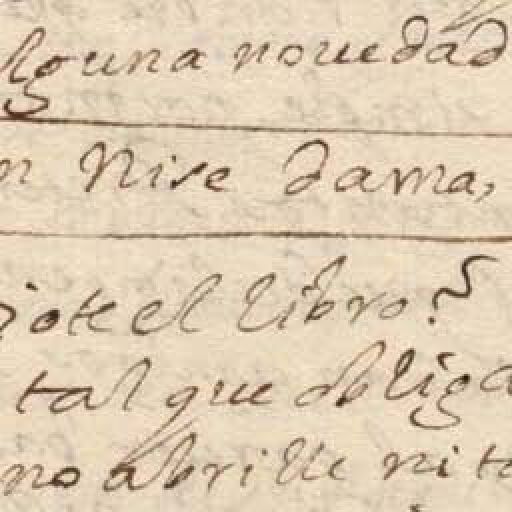 lguna nouedad
n Nise dama,
iote el libro?
tal que obliga
no abrille ni to